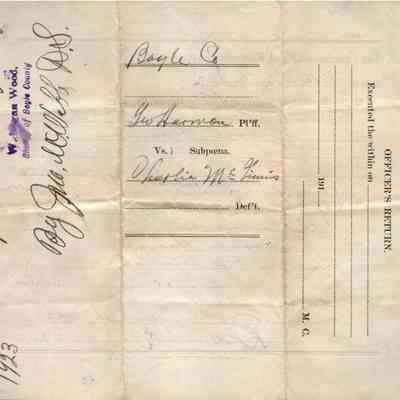 Boyle Co
Geo Harmon Pl'ff.
Vs. } Subpœna.
Charlie McGinnis
Def't.
OFFICER'S RETURN.
Executed the within on
191
M. C.
Wood,
of Boyle County
By Jno. D.S.
1923